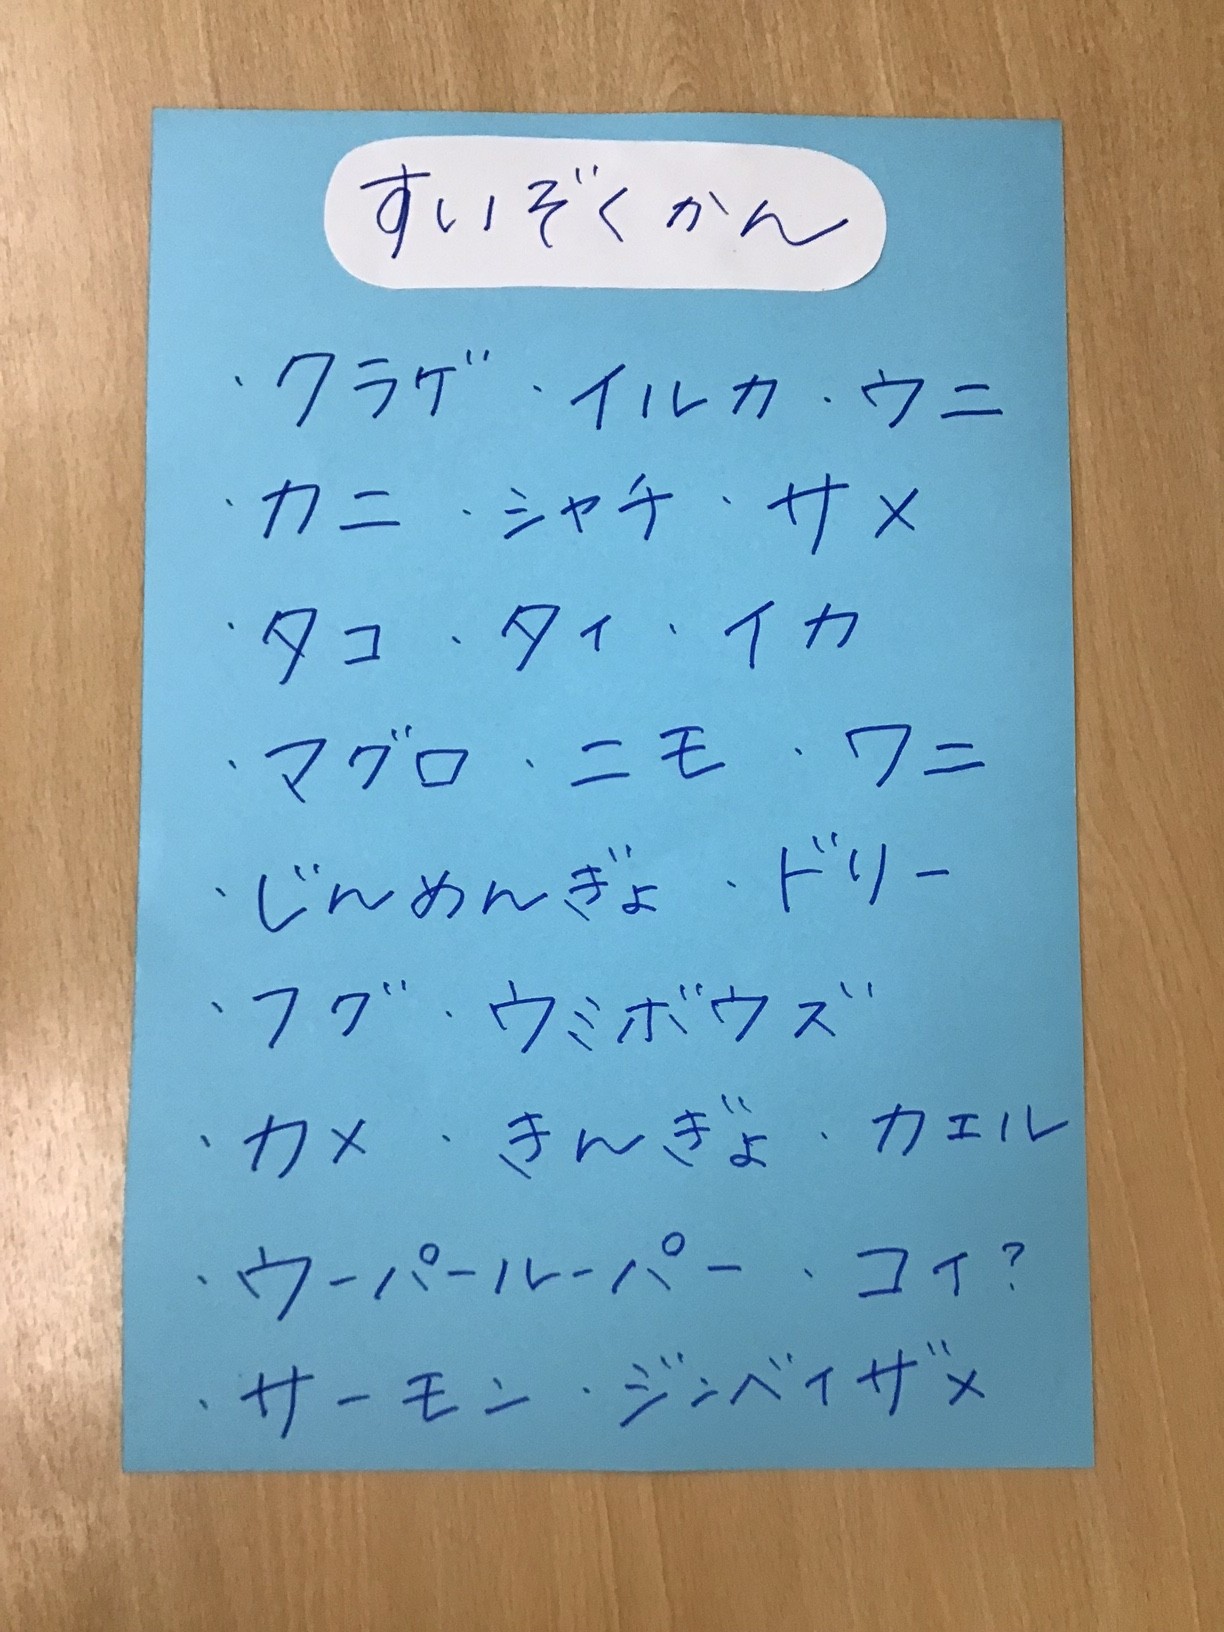 すいぞくかん
・クラゲ ・イルカ ・ウニ
・カニ ・シャチ ・サメ
・タコ ・タイ ・イカ
・マグロ ・ニモ ・ワニ
・じんめんぎょ ・ドリー
・フグ ・ウミボウズ
・カメ ・きんぎょ ・カエル
・ウーパールーパー ・コイ?
・サーモン ・ジンベイザメ